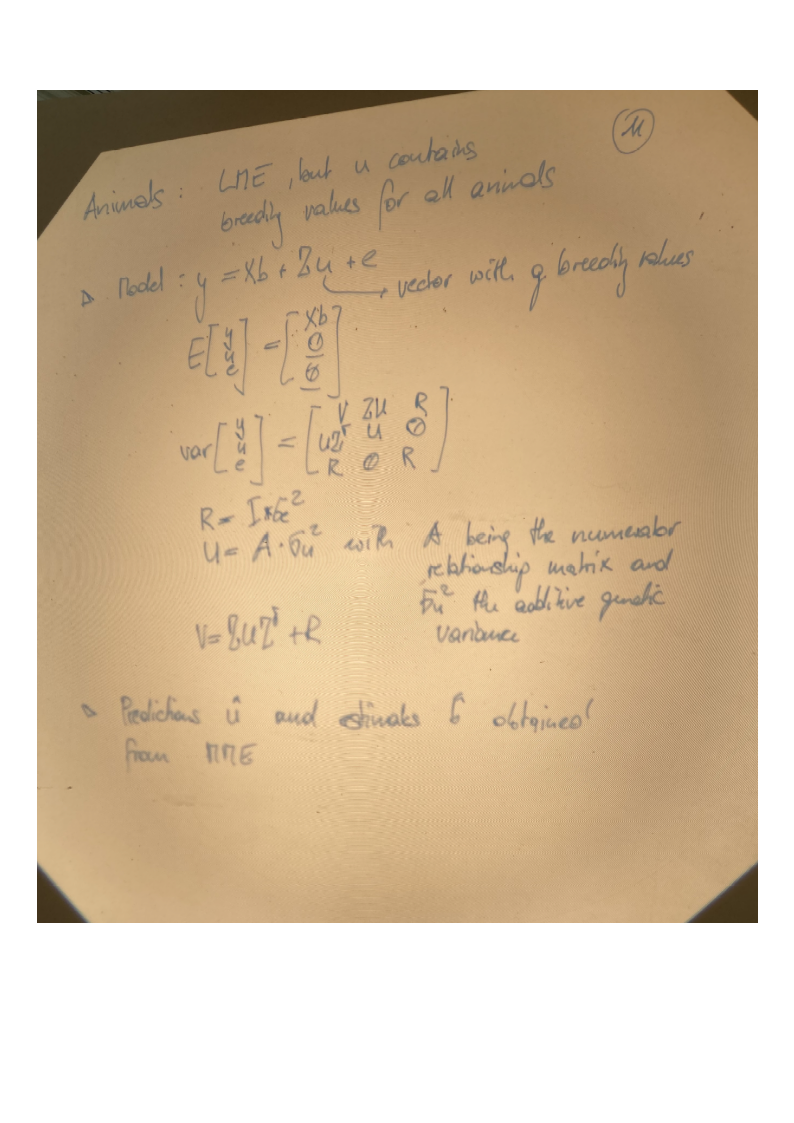 11
Animals : LME, but u contains
breeding values for all animals
▷ Model : y = Xb + Zu + e
→ vector with q breeding values
E[y u e] = [Xb 0 0]
var[y u e] = [V ZU R
UZᵀ U 0
R 0 R]
R = I*σe²
U = A·σu² with A being the numerator
relationship matrix and
σu² the additive genetic
variance
V = ZUZᵀ + R
▷ Predictions û and estimates b̂ obtained
from MME